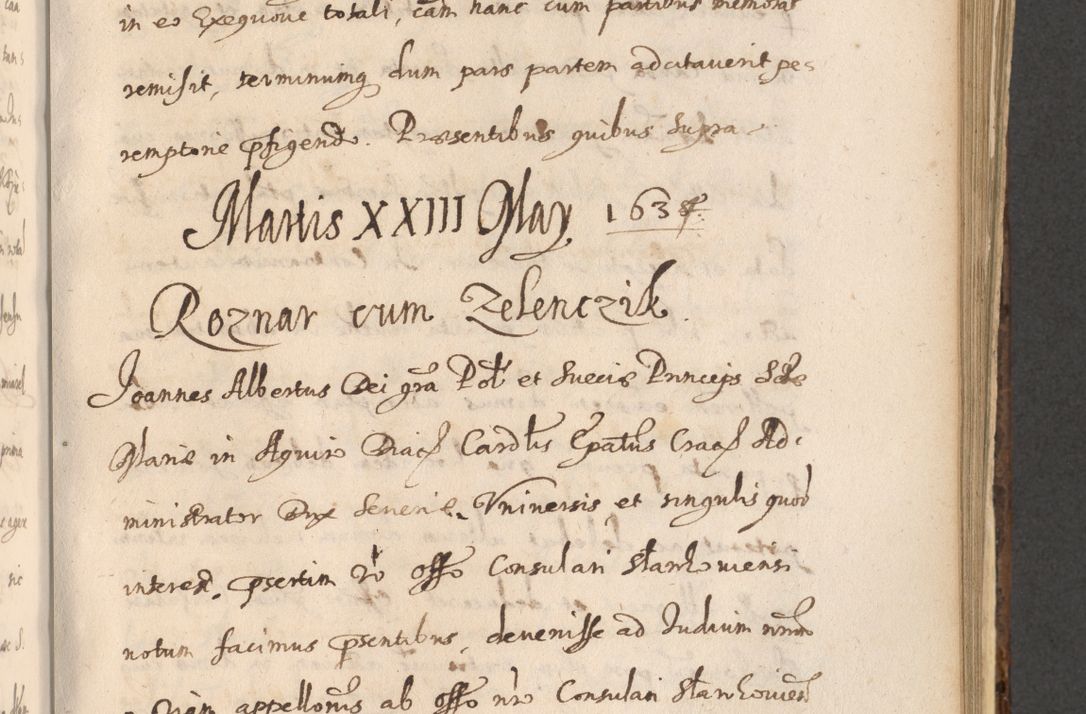 in eo Exequoue totali, cam hanc cum partibus memoras
remisit, terminumq dum pars partem adcitauerit pe
remptorie pfigend. Praesentibus quibus supra
Martis XXIII May 1634.
Roznar cum Zelenczik.
Joannes Albertus Dei gra Pol et Sueciæ Princeps Sctæ
Mariæ in Aquiro Diac Cardlis Epatus Crac Ad
ministrator Dux Seueriæ. Vniuersis et singulis quor
interest, psertim vro offo Consulari Slawkouiensi
notum facimus psentibus, deuenisse ad Iudicium nrum
appellonis ab offo nro Consulari Slawkouien